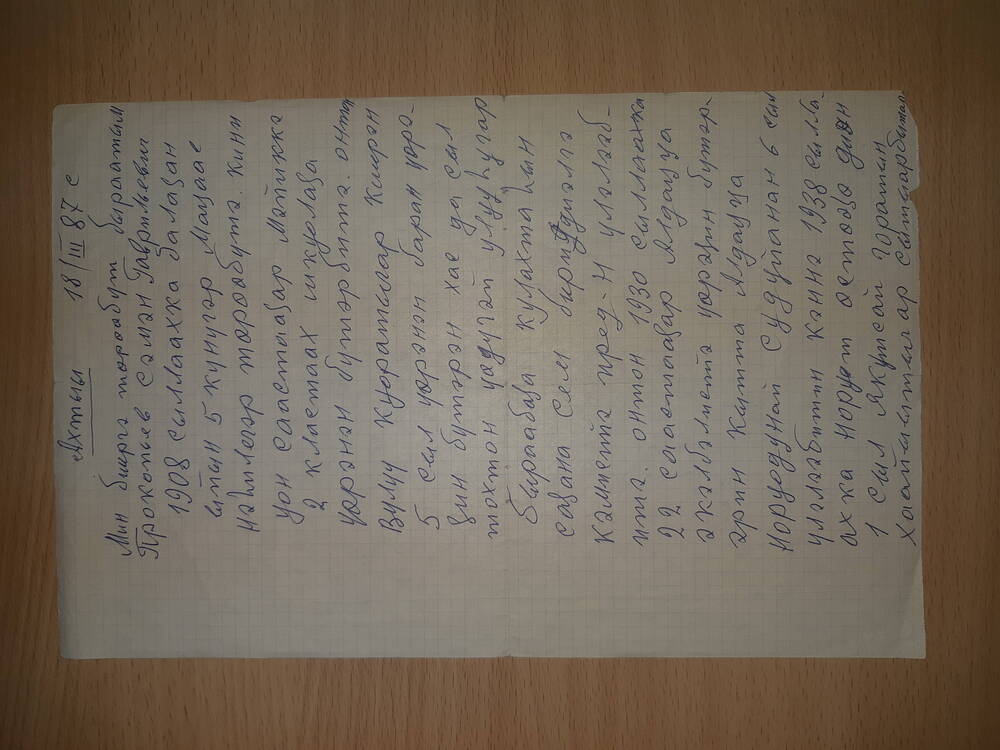 Ахтыы 18/III 87 с
Мин бииргэ төрөөбүт быраатым
Прокопьев Сэмэн Гаврильевич
1908 сыллаахха балаҕан
ыйын 5 күнүгэр Маҥаас
нэһилегэр төрөөбүтэ. Кини
уон саастааҕар Мэйиккэ
2 кластаах шкуолаҕа
үөрэнэн бүтэрбитэ. онтон
Бүлүү куоратыгар киирэн
5 сыл үөрэнэн баран үөрэ-
ҕин бүтэрэн хас да сыл
тохтон Үөдүгэй улууһугар
быраабаҕа кулахтаһын
саҕана Сем
кэмиетэ пред-н үлэлээб-
итэ. онтон 1930 сыллаахха
22 саастааҕар Алдаҥҥа
үөрэҕин бүтэр-
эрин кытта Алдаҥҥа
Норуодунай Судуйанан 6 сыл
үлэлээбитин кэннэ 1938 сылла-
ахха Норуот өстөөҕө диэн
1 сыл Якутскай горатын
хаайыытыгар сытыарбыттар